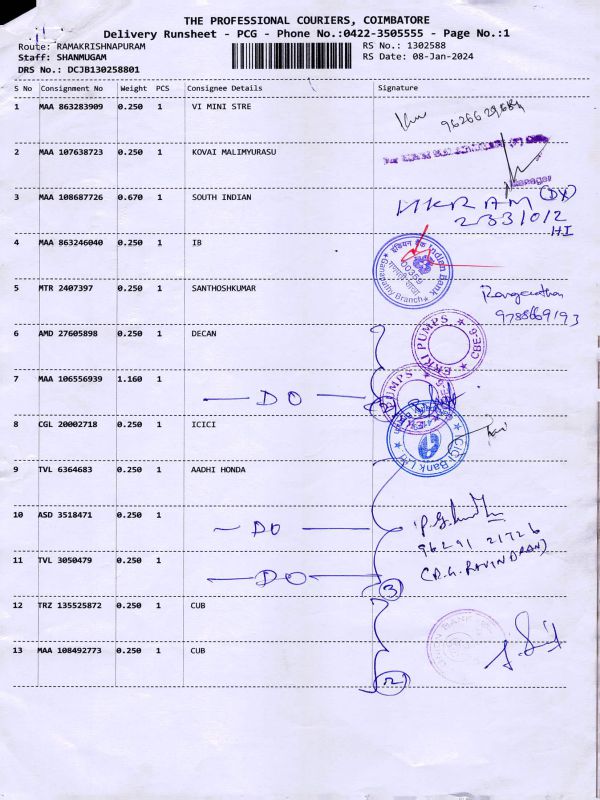 THE PROFESSIONAL COURIERS, COIMBATORE
Delivery Runsheet - PCG - Phone No.:0422-3505555 - Page No.:1
Route: RAMAKRISHNAPURAM RS No.: 1302588
Staff: SHANMUGAM RS Date: 08-Jan-2024
DRS No.: DCJB130258801
S No Consignment No Weight PCS Consignee Details Signature
1 MAA 863283909 0.250 1 VI MINI STRE
2 MAA 107638723 0.250 1 KOVAI MALIMYURASU
Manager
3 MAA 108687726 0.670 1 SOUTH INDIAN
233/0/2
HI
4 MAA 863246040 0.250 1 IB
इंडियन बैंक Indian Bank
00259
Ganapathy Branch
5 MTR 2407397 0.250 1 SANTHOSHKUMAR
6 AMD 27605898 0.250 1 DECAN
EKKI PUMPS CBE-6
7 MAA 106556939 1.160 1 DO
PUMPS
8 CGL 20002718 0.250 1 ICICI
ICICI Bank Ltd
9 TVL 6364683 0.250 1 AADHI HONDA
10 ASD 3518471 0.250 1 DO
96291 21726
11 TVL 3050479 0.250 1 DO
(P.G. RAVINDRAN)
3
12 TRZ 135525872 0.250 1 CUB
13 MAA 108492773 0.250 1 CUB
2